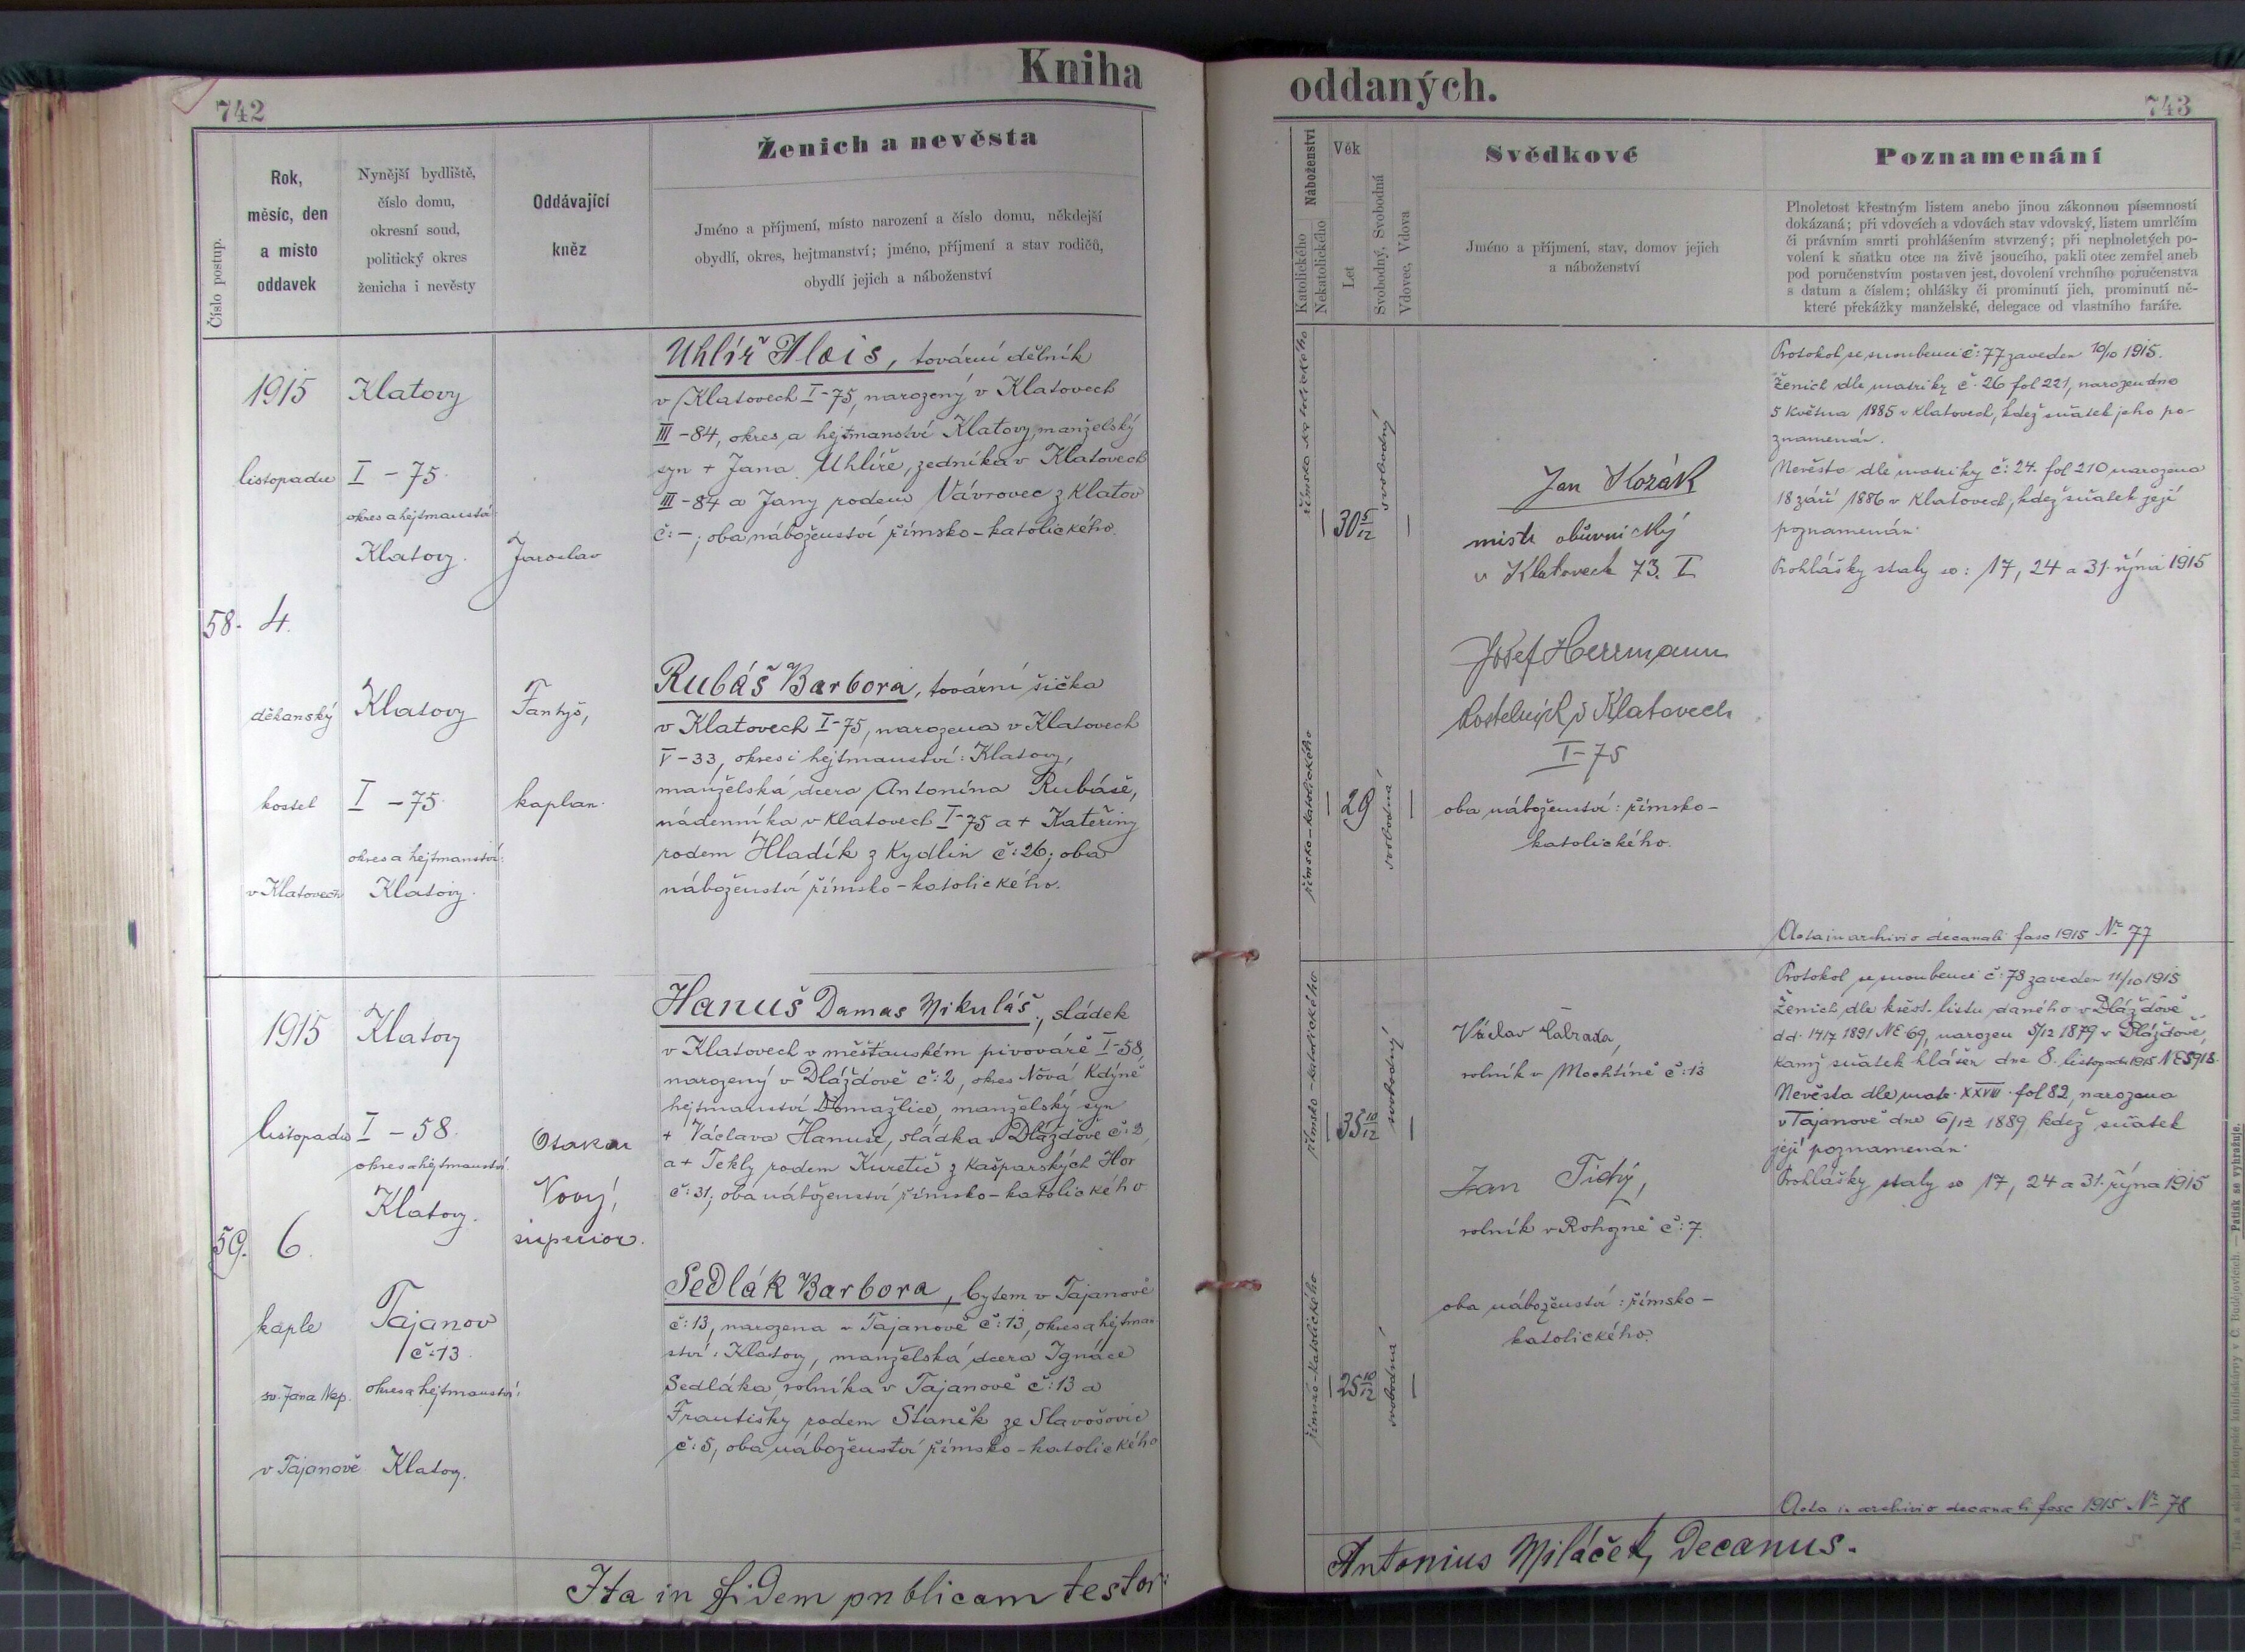 Kniha
742
Číslo postup.
Rok,
měsíc, den
a místo
oddavek
Nynější bydliště,
číslo domu,
okresní soud,
politický okres
ženicha i nevěsty
Oddávající
kněz
Ženich a nevěsta
Jméno a příjmení, místo narození a číslo domu, někdejší
obydlí, okres, hejtmanství; jméno, příjmení a stav rodičů,
obydlí jejich a náboženství
58.
1915
listopadu
4.
děkanský
kostel
v Klatovech
Klatovy
I - 75.
okres a hejtmanství:
Klatovy.
Klatovy
I - 75.
okres a hejtmanství:
Klatovy.
Jaroslav
Fantyš,
kaplan.
Uhlíř Alois, tovární dělník
v Klatovech I-75, narozený v Klatovech
III-84, okres a hejtmanství Klatovy, manželský
syn + Jana Uhlíře, zedníka v Klatovech
III-84 a Jany rodem Vávrovec z Klatov
č: -; oba náboženství římsko-katolického.
Rubáš Barbora, tovární šička
v Klatovech I-75, narozena v Klatovech
V-33, okres i hejtmanství: Klatovy,
manželská dcera Antonína Rubáše,
nádenníka v Klatovech I-75 a + Kateřiny
rodem Hladík z Kydlin č: 26; oba
náboženství římsko-katolického.
59.
1915
listopadu
6.
kaple
sv. Jana Nep.
v Tajanově
Klatovy
I - 58.
okres a hejtmanství
Klatovy.
Tajanov
č: 13.
okres a hejtmanství:
Klatovy.
Otakar
Nový,
superior.
Hanuš Damas Mikuláš, sládek
v Klatovech v měšťanském pivováře I-58,
narozený v Dlážďově č: 2, okres Nová Kdýně
hejtmanství Domažlice, manželský syn
+ Václava Hanuše, sládka v Dlážďově č: 2
a + Tekly rodem z Kašparských Hor
č: 31; oba náboženství římsko-katolického
Sedlák Barbora, bytem v Tajanově
č: 13, narozena v Tajanově č: 13, okres a hejtman-
ství: Klatovy, manželská dcera Ignáce
Sedláka, rolníka v Tajanově č: 13 a
Františky rodem Staněk ze Slavošovic
č: 5, oba náboženství římsko-katolického
Ita in fidem publicam testor:
oddaných.
743
Náboženství
Katolického
Nekatolického
Věk
Let
Svobodný, Svobodná
Vdovec, Vdova
Svědkové
Jméno a příjmení, stav, domov jejich
a náboženství
Poznamenání
Plnoletost křestným listem anebo jinou zákonnou písemností
dokázaná; při vdovcích a vdovách stav vdovský, listem umrlčím
či právním smrti prohlášením stvrzený; při neplnoletých po-
volení k sňatku otce na živě jsoucího, pakli otec zemřel aneb
pod poručenstvím postaven jest, dovolení vrchního poručenstva
s datum a číslem; ohlášky či prominutí jich, prominutí ně-
které překážky manželské, delegace od vlastního faráře.
římsko-katolického
30 5/12
svobodný
římsko-katolického
29
svobodná
Jan Kozák
mistr obuvnický
v Klatovech 73. I
Josef Herrmann
kostelník v Klatovech
I-75
oba náboženství: římsko-
katolického.
Protokol se snoubenci č: 77 zaveden 10/10 1915.
Ženich dle matriky č. 26 fol 221, narozen dne
5 května 1885 v Klatovech, kdež sňatek jeho po-
znamenán.
Nevěsta dle matriky č: 24. fol 210 narozena
18 září 1886 v Klatovech, kdež sňatek její
poznamenán.
Prohlášky staly se: 17, 24 a 31. října 1915
Acta in archivio decanali fasc 1915 Nr 77
římsko-katolického
35 10/12
svobodný
římsko-katolického
25 10/12
svobodná
Václav
rolník v Mochtíně č: 13
Jan Tichý,
rolník v Rohozně č: 7.
oba náboženství: římsko-
katolického.
Protokol se snoubenci č: 78 zaveden 11/10 1915
Ženich dle křest. listu daného v Dlážďově
dd. 14/7 1891 NE 69, narozen 5/12 1879 v Dlážďově,
kamž sňatek hlášen dne 8. listopadu 1915 NE 5918.
Nevěsta dle matr. XXVIII. fol 82, narozena
v Tajanově dne 6/12 1889, kdež sňatek
její poznamenán.
Prohlášky staly se 17, 24 a 31. října 1915
Acta in archivio decanali fasc 1915 Nr 78
Antonius Miláček, Decanus.
Patisk se vyhražuje.